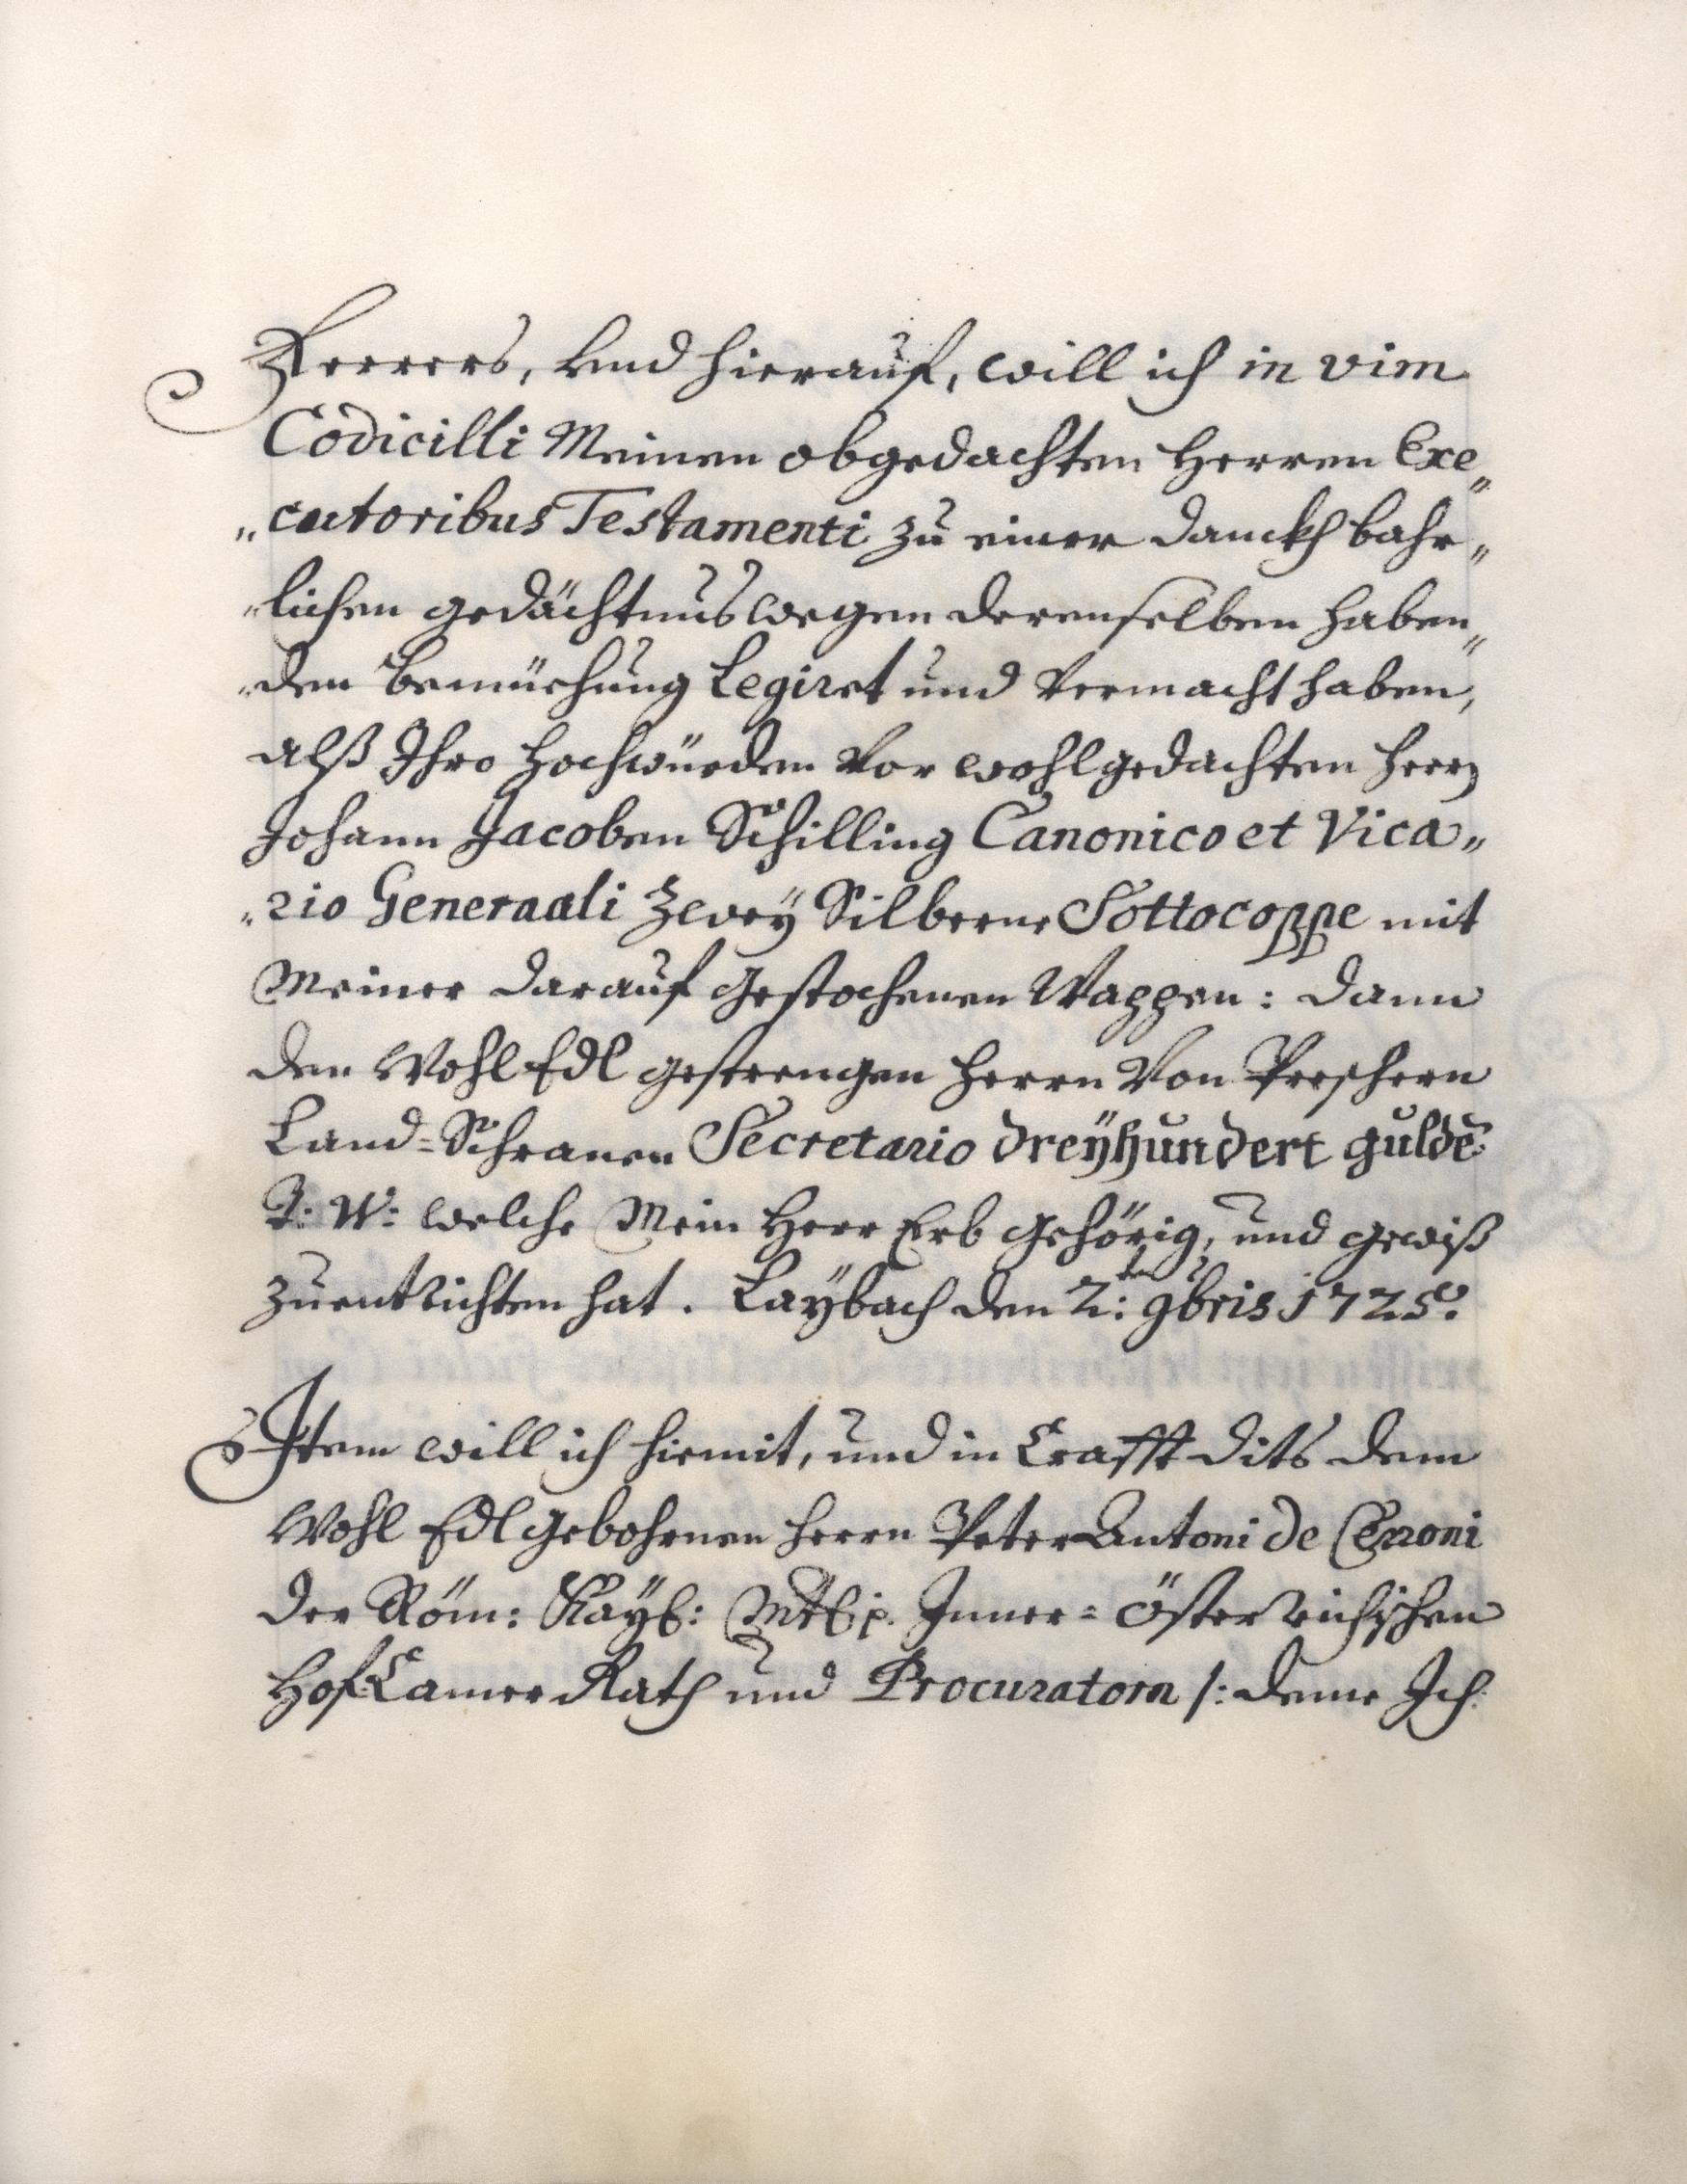 Ferrers, und hierauf, will ich in vim
Codicilli Meinen obgedachten Herren Exe„
„cutoribus Testamenti zu einer danckhbahr„
„lichen gedächtnus wegen derenselben haben„
„den bemüehung Legiret und vermacht haben,
alß Ihro Hochwürden Vor wohlgedachten Herrn
Johann Jacoben Schilling Canonico et Vica„
„rio Generaali zwey Silberne Sottocoppe mit
Meiner darauf gestochenen Wappen: dann
den WohlEdl gestrengen Herrn Von Preschern
Land=Schranen Secretario dreÿhundert guldē
T: W: welche Mein Herr Erb gehörig, und gewiß
zuentrichten hat. Laÿbach den 2:ten 9bris 1725.
Item will ich hiemit, und in Crafft dits dem
Wohl Edlgebohrnen Herrn Peter Antoni de Cerroni
der Röm: Kaÿß: Inner=Österreichischen
Hof-Camer Rath und Procuratorn /: deme Ich